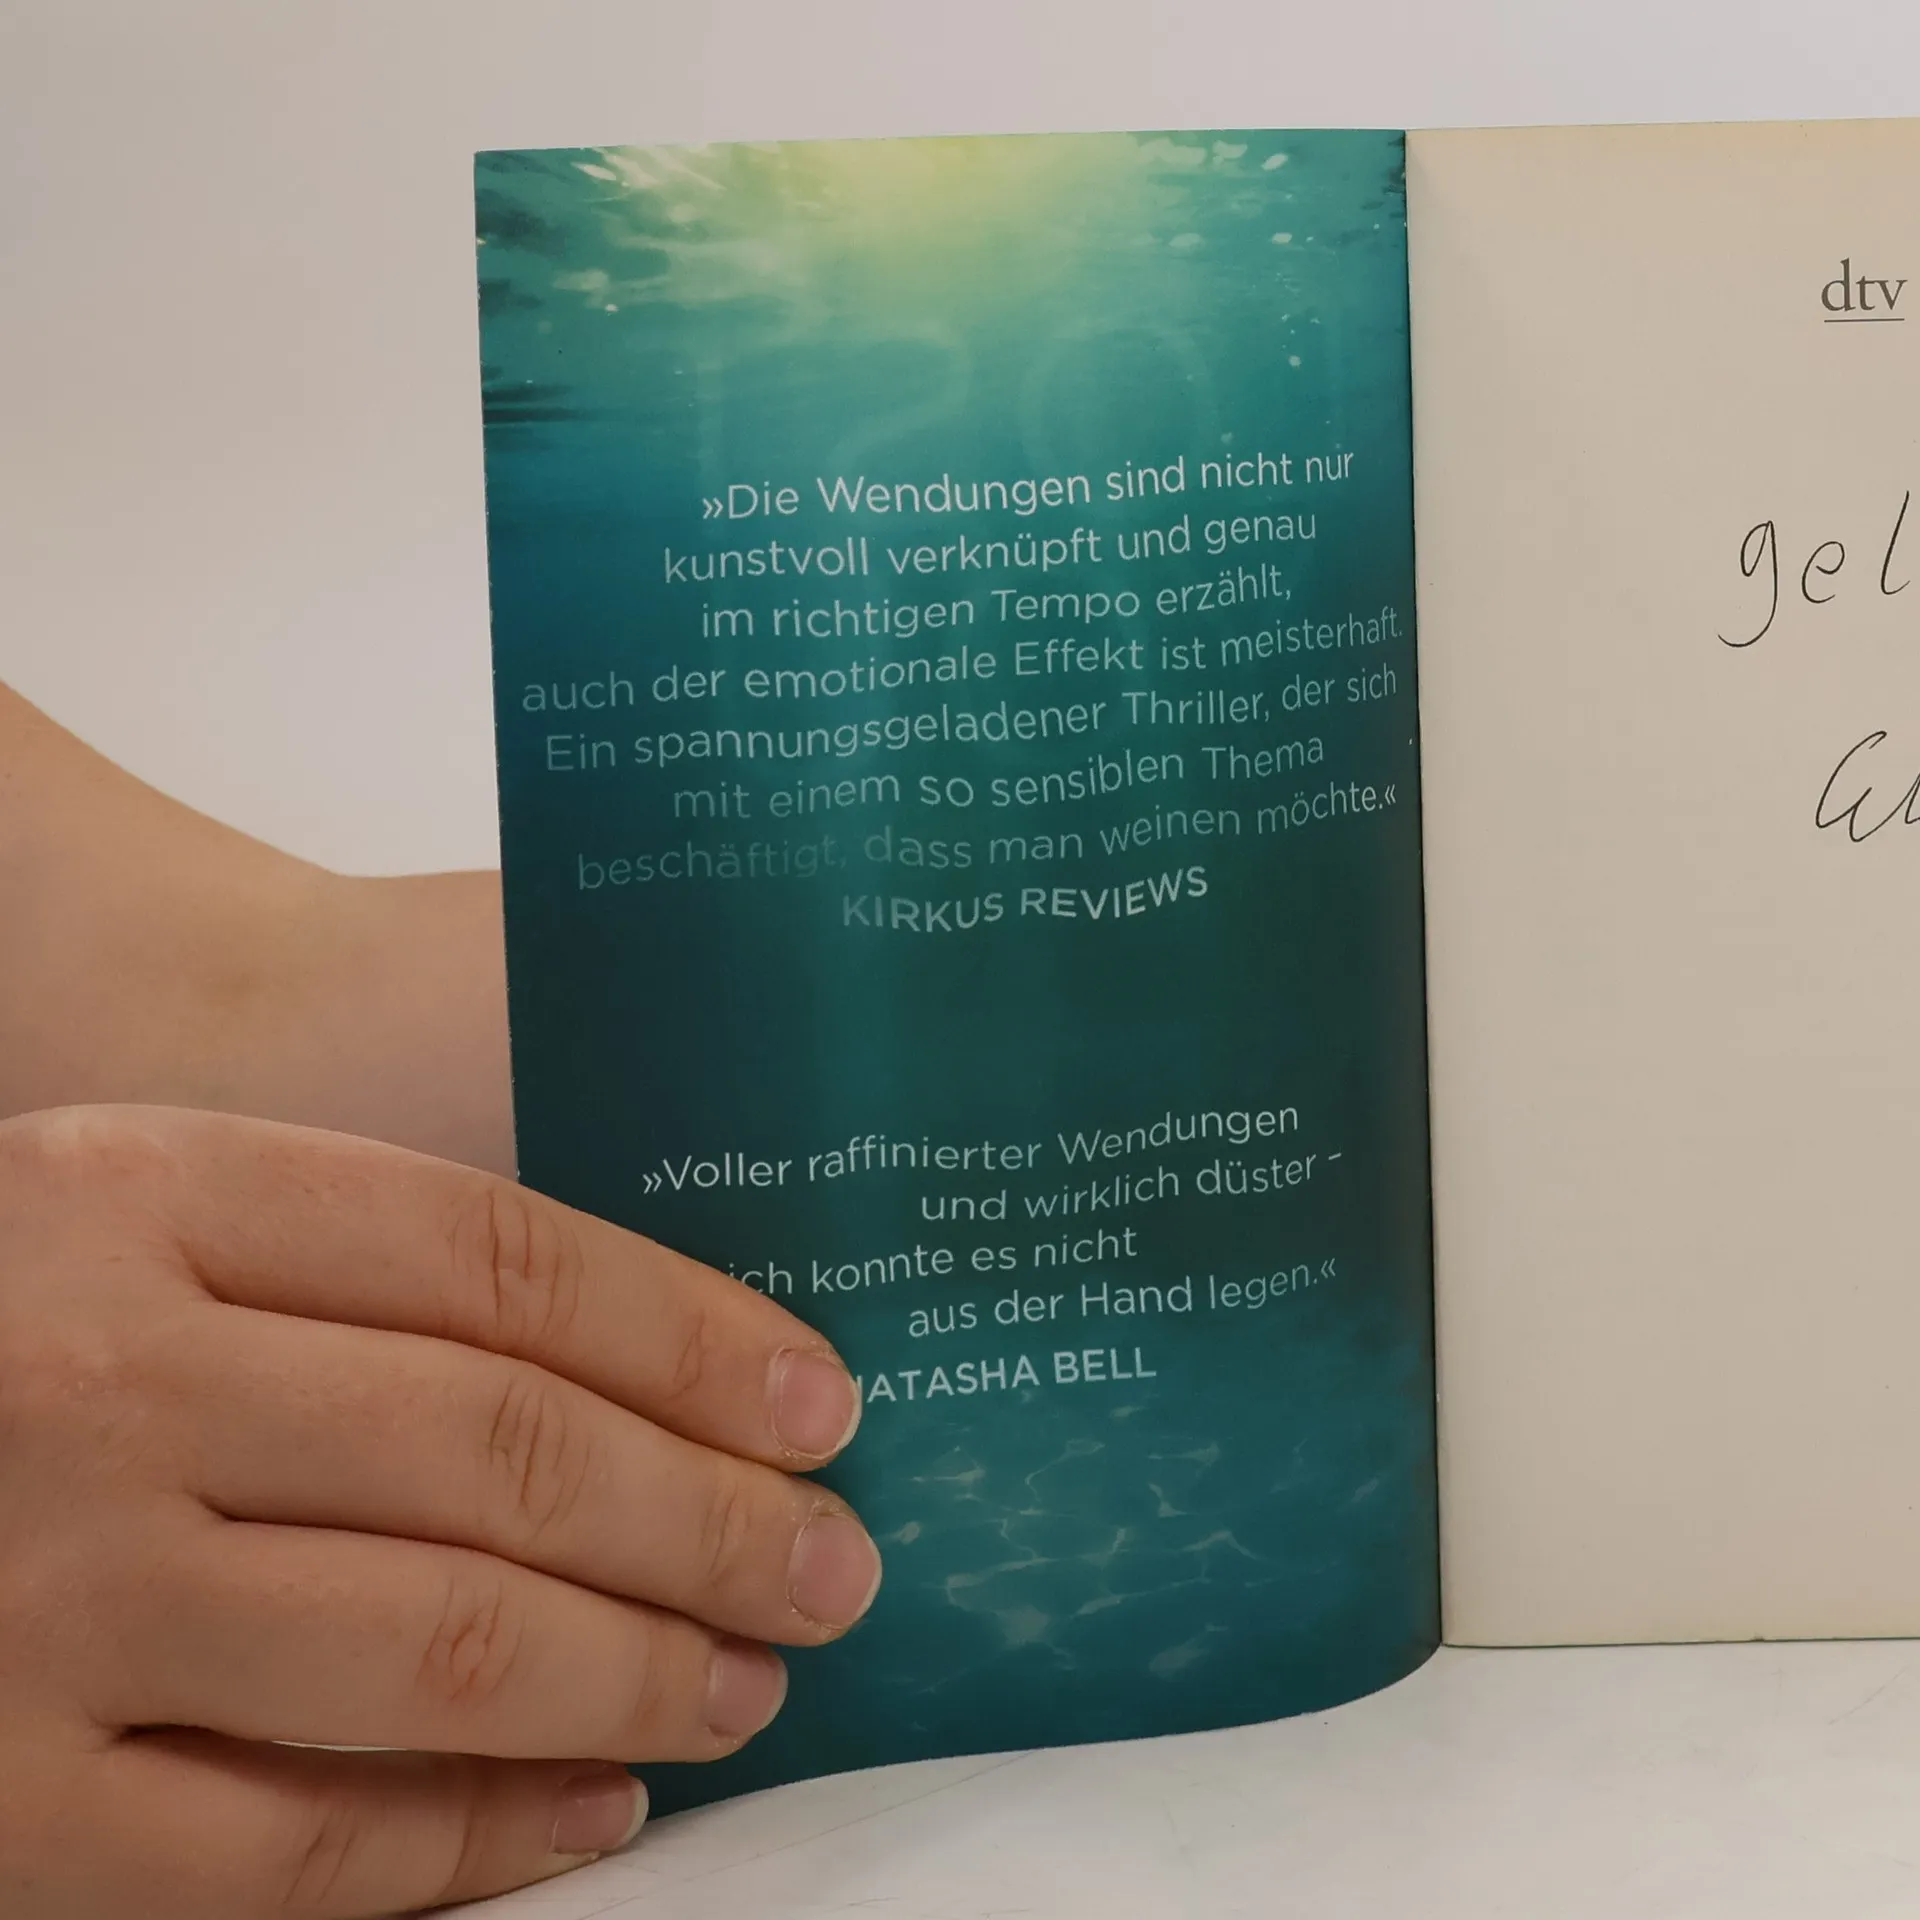 »Die Wendungen sind nicht nur
kunstvoll verknüpft und genau
im richtigen Tempo erzählt,
auch der emotionale Effekt ist meisterhaft.
Ein spannungsgeladener Thriller, der sich
mit einem so sensiblen Thema
beschäftigt, dass man weinen möchte.«
KIRKUS REVIEWS
»Voller raffinierter Wendungen
und wirklich düster -
ich konnte es nicht
aus der Hand legen.«
NATASHA BELL
dtv
gel